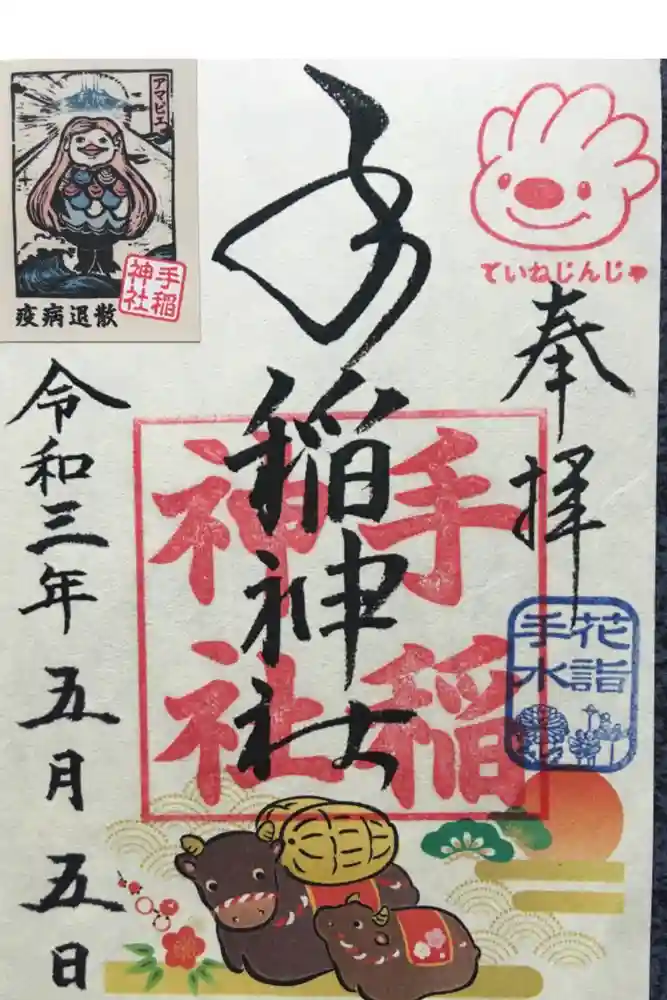 ていねじんじゃ
奉拝
花詣
手水
手稲神社
手稲
神社
アマビエ
手稲
神社
疫病退散
令和三年五月五日